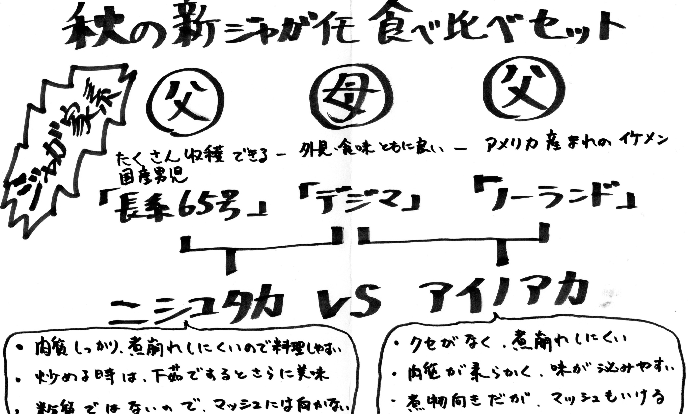 秋の新ジャガイモ 食べ比べセット
ジャガ家系
父 母 父
たくさん収穫できる 国産男児
外見・食味ともに良い
アメリカ産まれのイケメン
「長系65号」 「デジマ」 「ノーランド」
ニシユタカ VS アイノアカ
・肉質しっかり、煮崩れしにくいので料理しやすい
・炒める時は、下茹でするとさらに美味
・粉質ではないので、マッシュには向かない
・クセがなく、煮崩れしにくい
・肉質が柔らかく、味が沁みやすい
・煮物向きだが、マッシュもいける